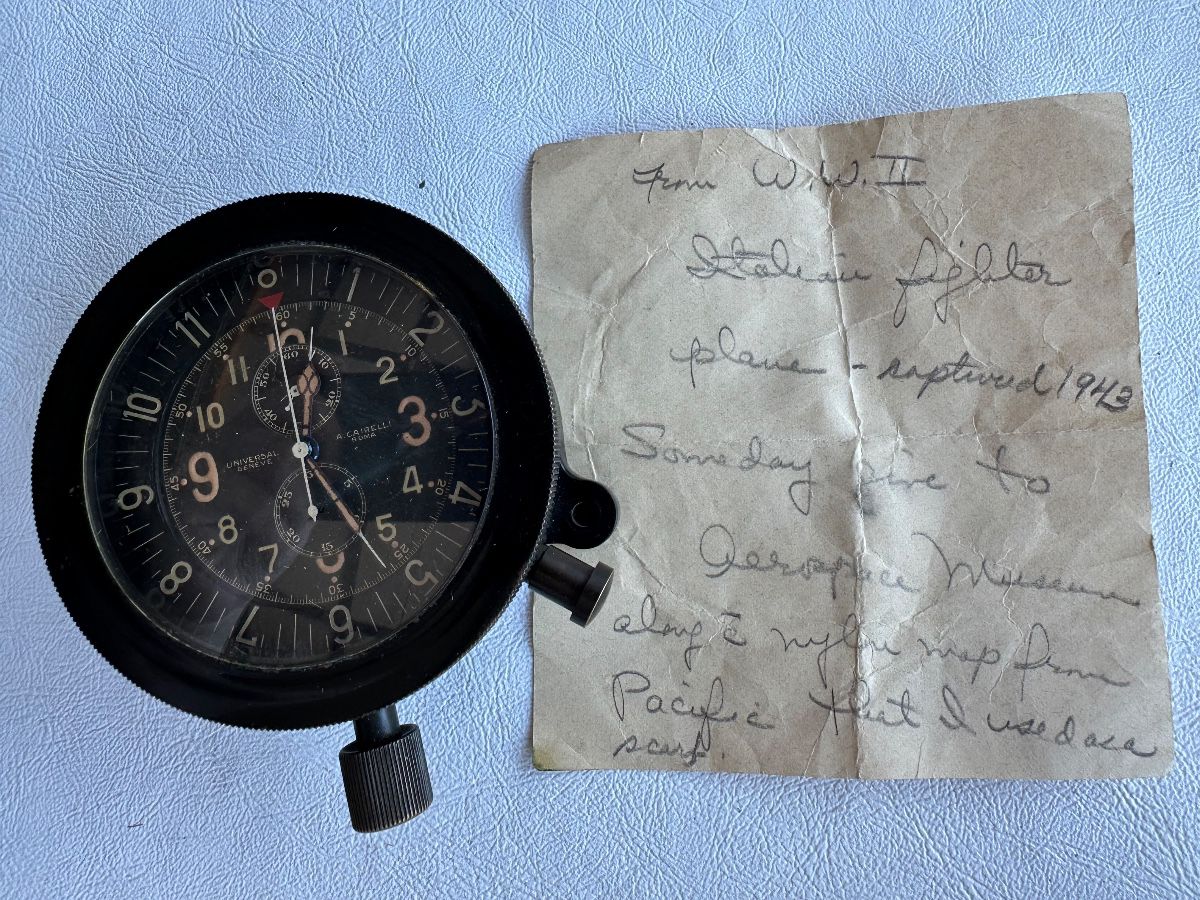 0
1
2
3
4
5
6
7
8
9
10
11
60
5
10
15
20
25
30
35
40
45
50
55
11
1
2
3
4
5
7
8
9
10
60
10
20
40
50
5
15
20
25
UNIVERSAL
GENEVE
A. CAIRELLI
ROMA
From W.W. II
Italian fighter
plane - captured 1943
Someday give to
Aerospace Museum
along c̄ nylon map from
Pacific that I used as a
scarf.